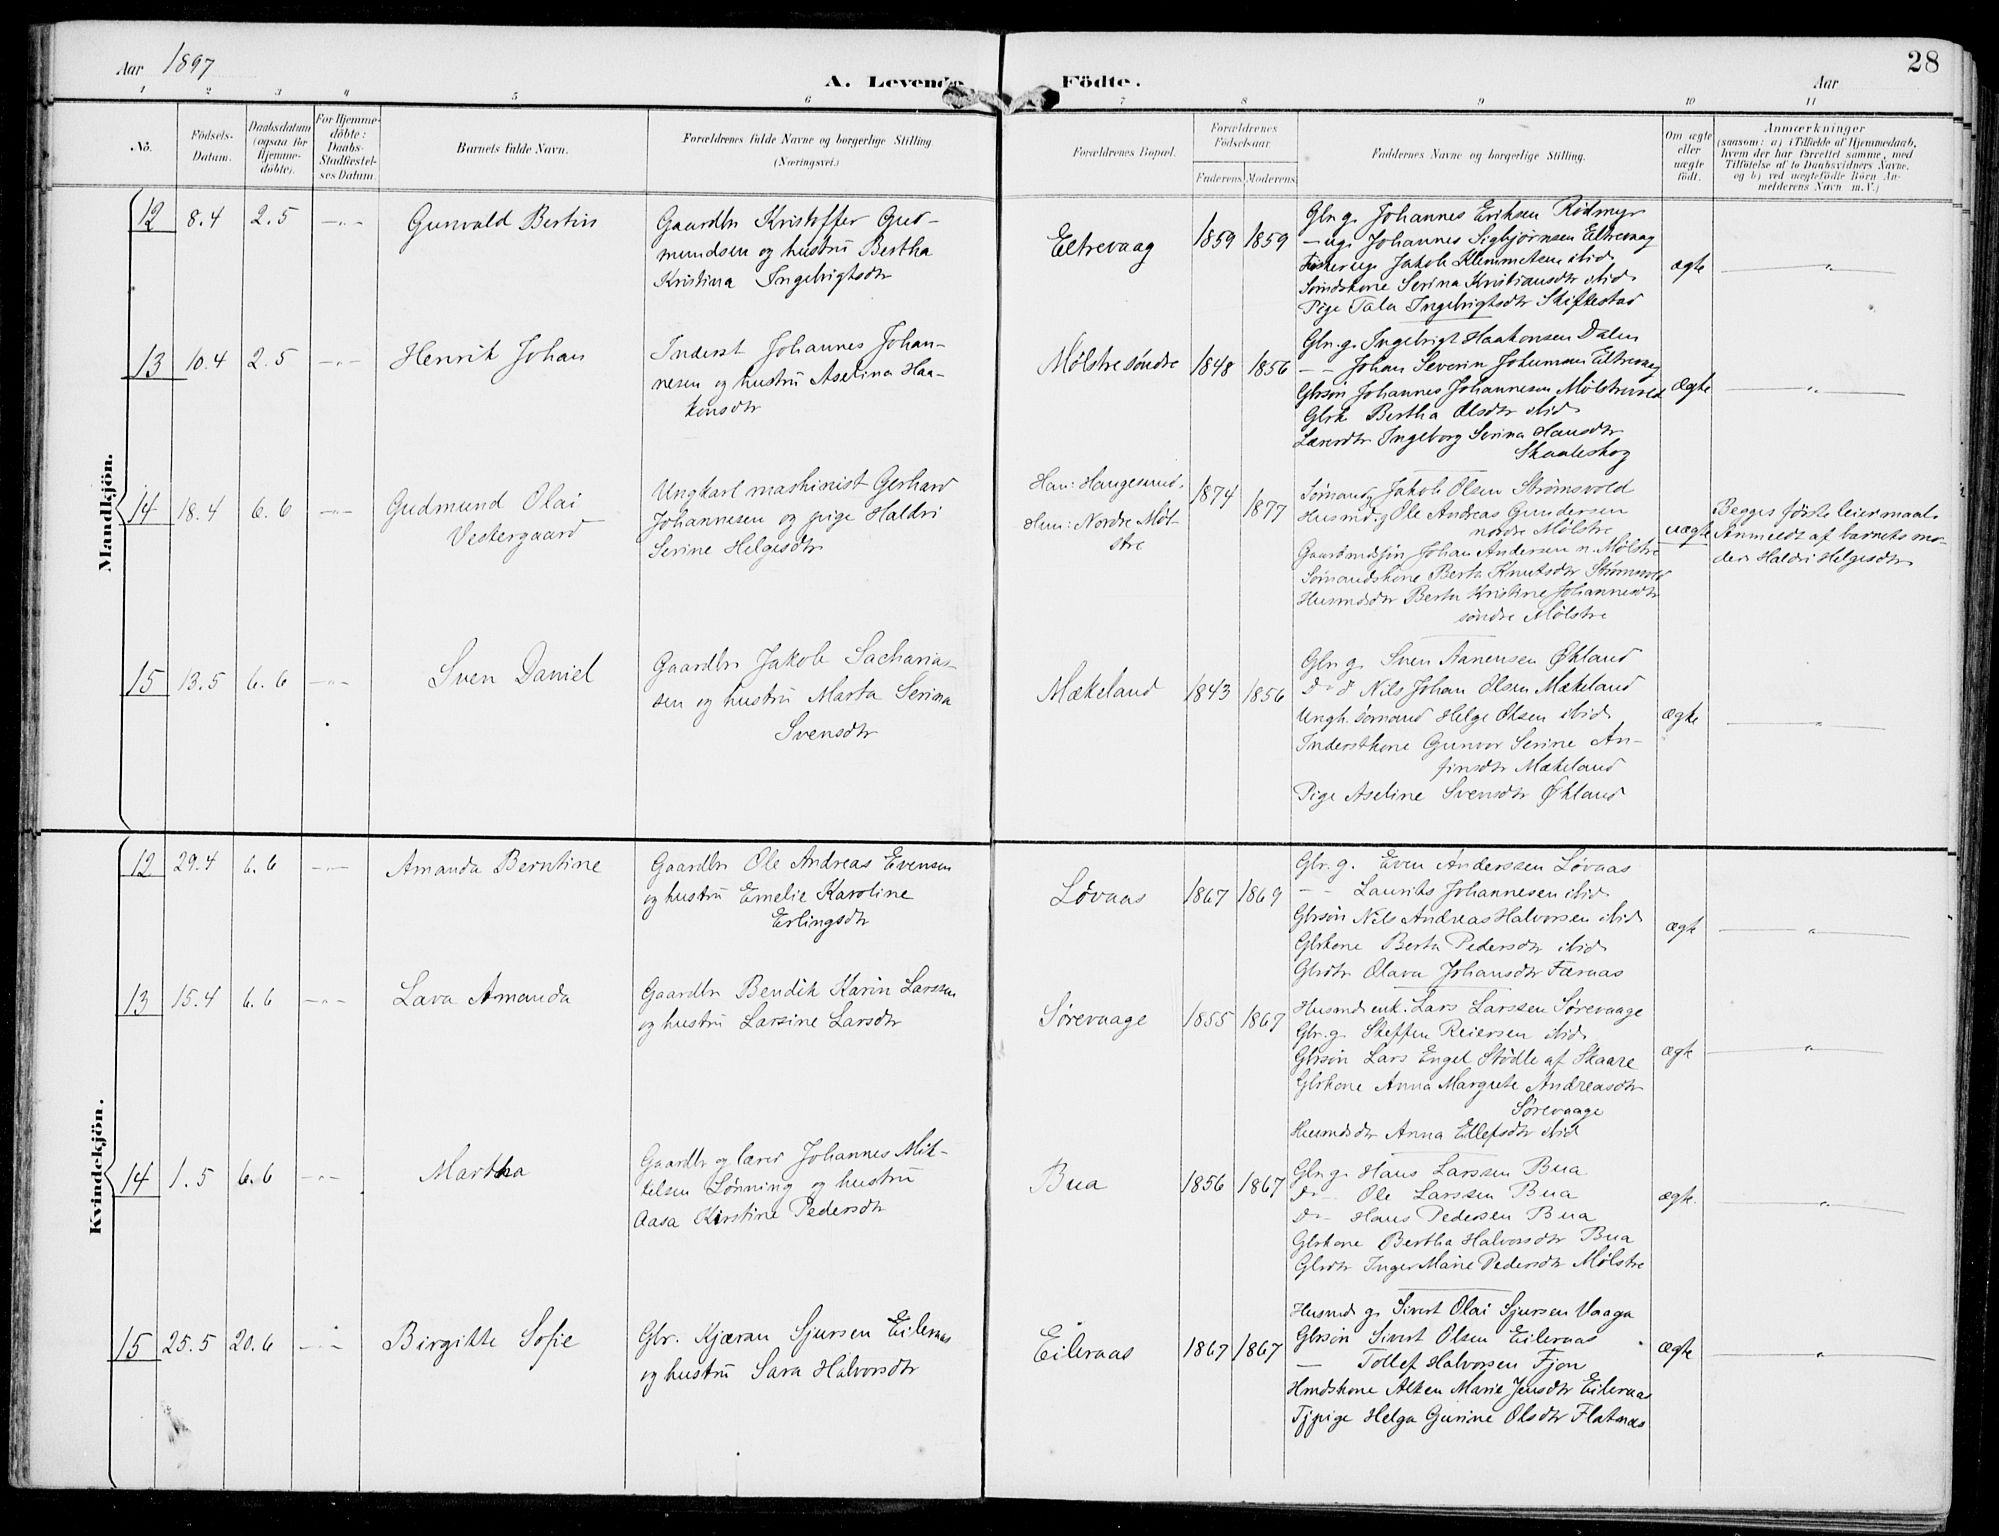 28
Aar 1897
A. Levende Födte.
Aar
1 2 3 4 5 6 7 8 9 10 11
No.
Födsels-
Datum.
Daabsdatum
(ogsaa for
Hjemme-
döbte).
For Hjemme-
döbte:
Daabs-
Stadfæstel-
ses Datum.
Barnets fulde Navn.
Forældrenes fulde Navne og borgerlige Stilling.
(Næringsvei.)
Forældrenes Bopæl.
Forældrenes
Födselsaar.
Faderens. Moderens.
Faddernes Navne og borgerlige Stilling.
Om ægte
eller
uægte
födt.
Anmærkninger
(saasom: a) i Tilfælde af Hjemmedaab,
hvem der har forrettet samme, med
Tilföielse af to Daabsvidners Navne,
og b) ved uægtefödte Börn An-
melderens Navn m. V.)
Mandkjön.
12 8.4 2.5 —„—
Gunvald Bertin
Gaardbr Kristoffer Gud-
mundsen og hustru Bertha
Kristina Ingebrigtsdtr
Eltrevaag
1859 1859
Gbr. g. Johannes Eriksen Rödmyr
— ug. Johannes Sigbjørnsen Eltrevaag
Fisker ug. Jakob Klemmetsen ibid
Sømdskone Serina Kristiansdtr ibid
Pige Tala Ingebrigtsdtr Skiftestad
ægte
—„—
13 10.4 2.5 —„—
Henrik Johan
Inderst Johannes Johan-
nesen og hustru Aselina Haa-
konsdtr
Mølstre søndre
1848 1856
Gbr. g. Ingebrigt Haakonsen Dalen
— - Johan Severin Johannsen Eltrevaag
Gbrsøn Johannes Johannesen Mølstrevold
Gbrk Bertha Olsdtr ibid
Lærerdtr Ingeborg Serina Hansdtr
Skaaleskog
ægte
—„—
14 18.4 6.6 —„—
Gudmund Olai
Vestergaard
Ungkarl maskinist Gerhard
Johannesen og pige Haldri
Serine Helgesdtr
Han: Haugesund.
Hun: Nordre Møl-
stre
1874 1877
Sømand g Jakob Olsen Strømsvold
Husmd. g Ole Andreas Gundersen
nordre Mølstre
Gaardmdsøn Johan Andersen n. Mølstre
Sømandskone Berta Knutsdtr Strømsvold
Husmdsdtr Berta Kristine Johannesdtr
søndre Mølstre
uægte
Begges første leiermaal.
Anmeldt af barnets mo-
der Haldri Helgesdtr
15 13.5 6.6 —„—
Sven Daniel
Gaardbr Jakob Sacharias-
sen og hustru Marta Serina
Svensdtr
Mækeland
1843 1856
Gbr. g. Sven Aanensen Økland
D° d° Nils Johan Olsen Mækeland
Ungk. sømand Helge Olsen ibid.
Inderstkone Gunvor Serine An-
finsdtr Mækeland
Pige Aseline Svensdtr Økland
ægte
—„—
Kvindekjön.
12 29.4 6.6 —„—
Amanda Berntine
Gaardbr Ole Andreas Evensen
og hustru Emelie Karoline
Erlingsdtr
Løvaas
1867 1869
Gbr. g. Even Anderssen Løvaas
— - Laurits Johannesen ibid
Gbrsøn Nils Andreas Halvorsen ibid
Gbrkone Berta Pedersdtr ibid
Gbrdtr Olava Johansdtr Færaas
ægte
—„—
13 15.4 6.6 —„—
Lava Amanda
Gaardbr Bendik Karin Larssen
og hustru Larsine Larsdtr
Sørevaage
1855 1867
Husmd enk. Lars Larssen Sørevaage
Gbr. g. Steffen Reiersen ibid
Gbrsøn Lars Engel Stødle af Skaare
Gbrkone Anna Margrete Andreasdtr
Sørevaage
Husmdsdtr Anna Ellefsdtr ibid
ægte
—„—
14 1.5 6.6 —„—
Martha
Gaardbr og lærer Johannes Mik-
kelsen Lønning og hustru
Aasa Kirstine Pedersdtr
Bua
1856 1867
Gbr g. Hans Larssen Bua
D° — Ole Larssen Bua
D° — Hans Pedersen Bua
Gbrkone Bertha Halvorsdtr Bua
Gbrdtr Inger Marie Pedersdtr Mølstre
ægte.
—„—
15 25.5 20.6 —„—
Birgitte Sofie
Gbr. Kjæran Sjursen Eileraas
og hustru Sara Halvorsdtr
Eileraas
1867 1867
Husmd g. Sivert Olai Sjursen Vaaga
Gbrsøn Sivert Olsen Eileraas
— Tollef Halvorsen Fjon
Hmdskone Alken Marie Jensdtr Eileraas
Tjpige Helga Gurine Olsdtr Flatnæs
ægte
—„—